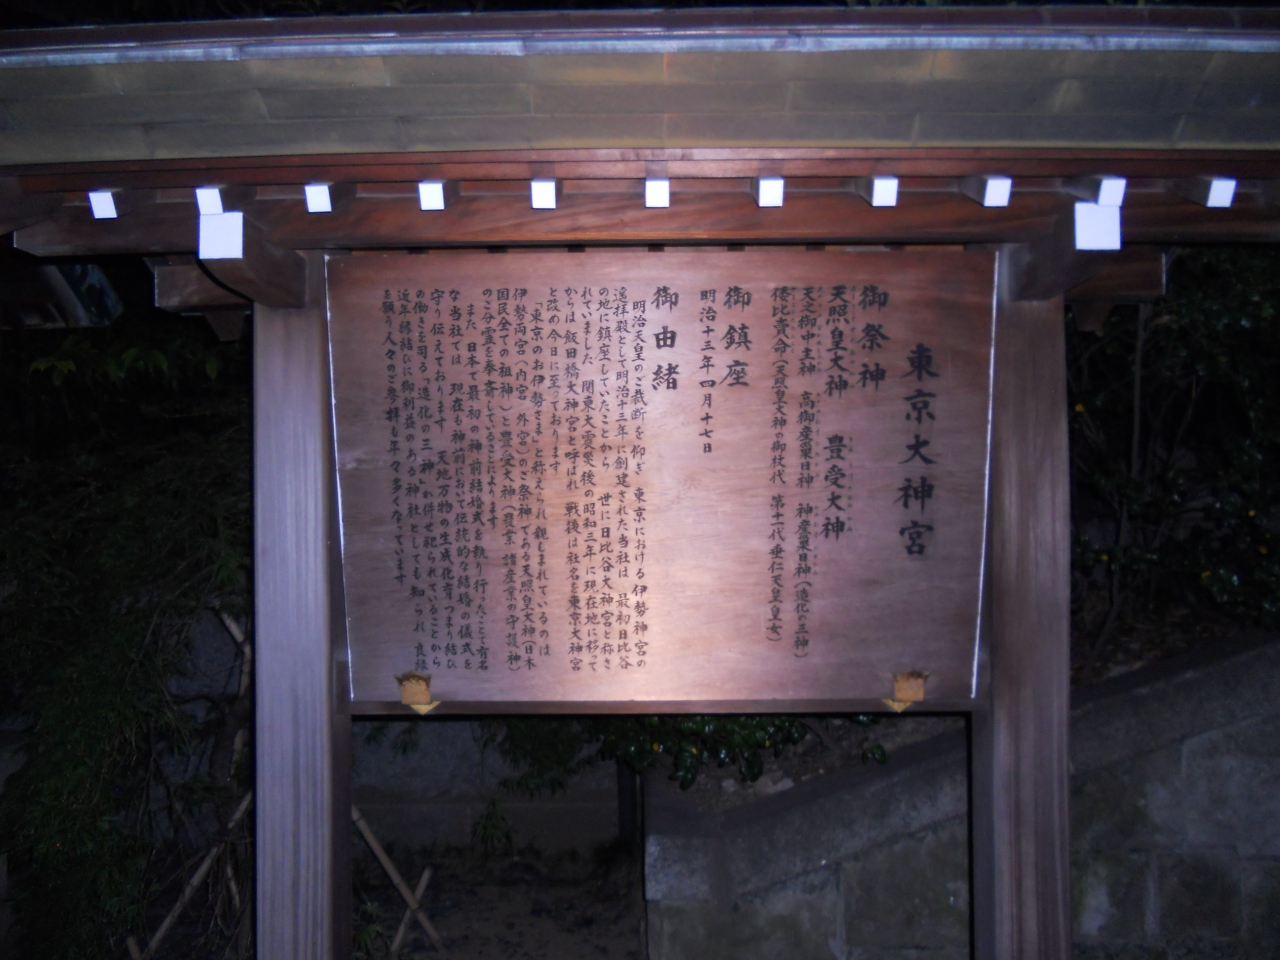 東京大神宮
御祭神
天照皇大神　豊受大神
天之御中主神　高御産巣日神　神産巣日神（造化の三神）
倭比賣命（天照皇大神の御杖代　第十一代垂仁天皇皇女）
御鎮座
明治十三年四月十七日
御由緒
明治天皇のご裁断を仰ぎ　東京における伊勢神宮の
遙拝殿として明治十三年に創建された当社は　最初日比谷
の地に鎮座していたことから　世に日比谷大神宮と称さ
れていました　関東大震災後の昭和三年に現在地に移って
からは飯田橋大神宮と呼ばれ　戦後は社名を東京大神宮
と改め今日に至っております
「東京のお伊勢さま」と称えられ親しまれているのは
伊勢両宮（内宮　外宮）のご祭神である天照皇大神（日本
国民全ての祖神）と豊受大神（農業　諸産業の守護神）
のご分霊を奉斎していることによります
また　日本で最初の神前結婚式を執り行ったことで有名
な当社では　現在も神前において伝統的な結婚の儀式を
守り伝えております　天地万物の生成化育つまり結び
の働きを司る「造化の三神」が併せ祀られていることから
近年縁結びに御利益のある神社としても知られ　良縁
を願う人々のご参拝も年々多くなっています